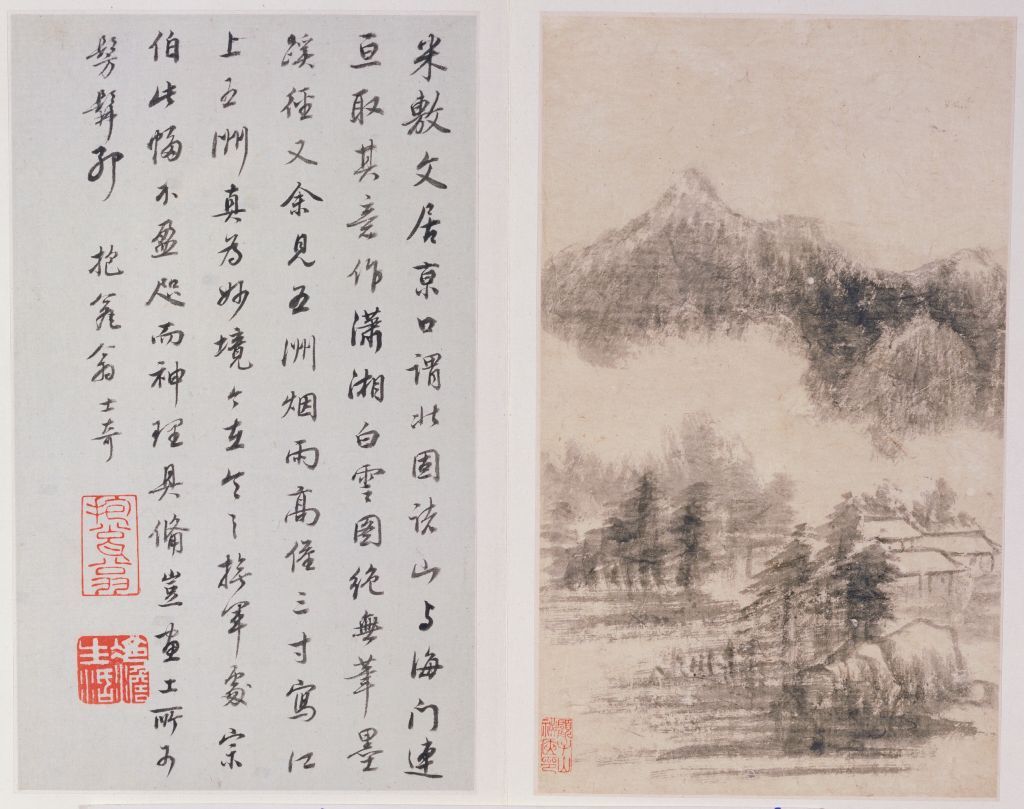 米敷文居京口謂北固諸山与海门連
亘取其意作瀟湘白雲圖絕無筆墨
蹊徑又余見五洲烟雨高僅三寸寫江
上五洲真为妙境今在軍處宗
伯此幅不盈咫而神理具備豈画工所可
髣髴耶 抱瓮翁士奇
抱瓮翁